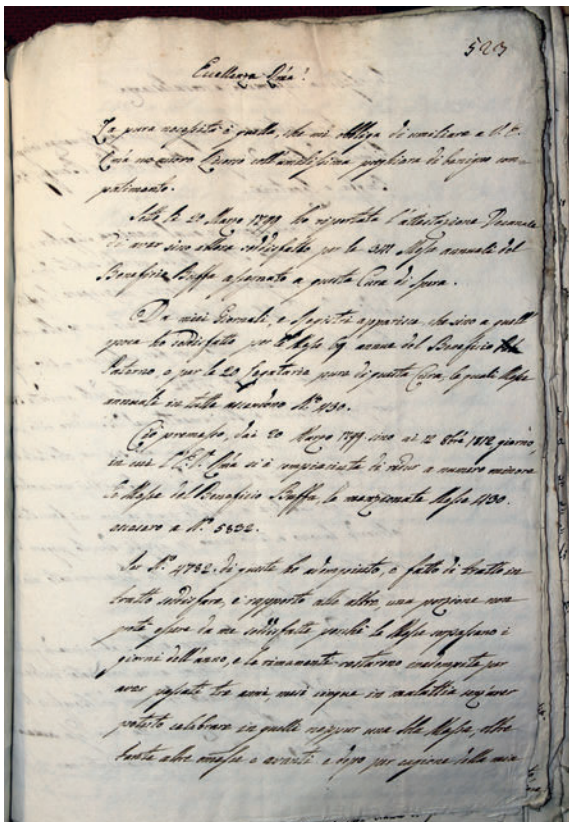 523
Eccellenza Rma!
La pura necessità è quella, che mi obbliga di umiliare a V. E.
Rma un nuovo Ricorso coll'umilissima preghiera di benigno com-
patimento.
Sotto li 20 Marzo 1799 ho riportata l'attestazione Decanale
di aver sino allora soddisfatto per le 341 Messe annuali del
Beneficio Buffa assegnato a questa Cura di Spera.
Da miei Giornali, e Registri apparisce, che sino a quell'
epoca ho soddisfatto per le Messe 69 annue del Beneficio
Paterno, e per le 20 Legatarie pure di questa Cura, le quali Messe
annuali in tutte ascendono N.º 430.
Ciò premesso, dai 20 Marzo 1799 sino ai 12 8bre 1812 giorno,
in cui l'E. V. Rma si è compiaciuta di ridur a numero minore
le Messe del Beneficio Buffa, le menzionate Messe 430.
ascesero a N.º 5832.
Per N.º 4782. di queste ho adempiuto, e fatto di tratto in
tratto soddisfare, e rapporto alle altre una porzione non
potè essere da me soddisfatta perchè le Messe sorpassano i
giorni dell'anno, e le rimanenti restarono inadempite per
aver passati tre anni, mesi cinque in malattia senz'aver
potuto celebrare in quelli neppur una sola Messa, oltre
tante altre omesse e avanti e dopo per cagione della mia